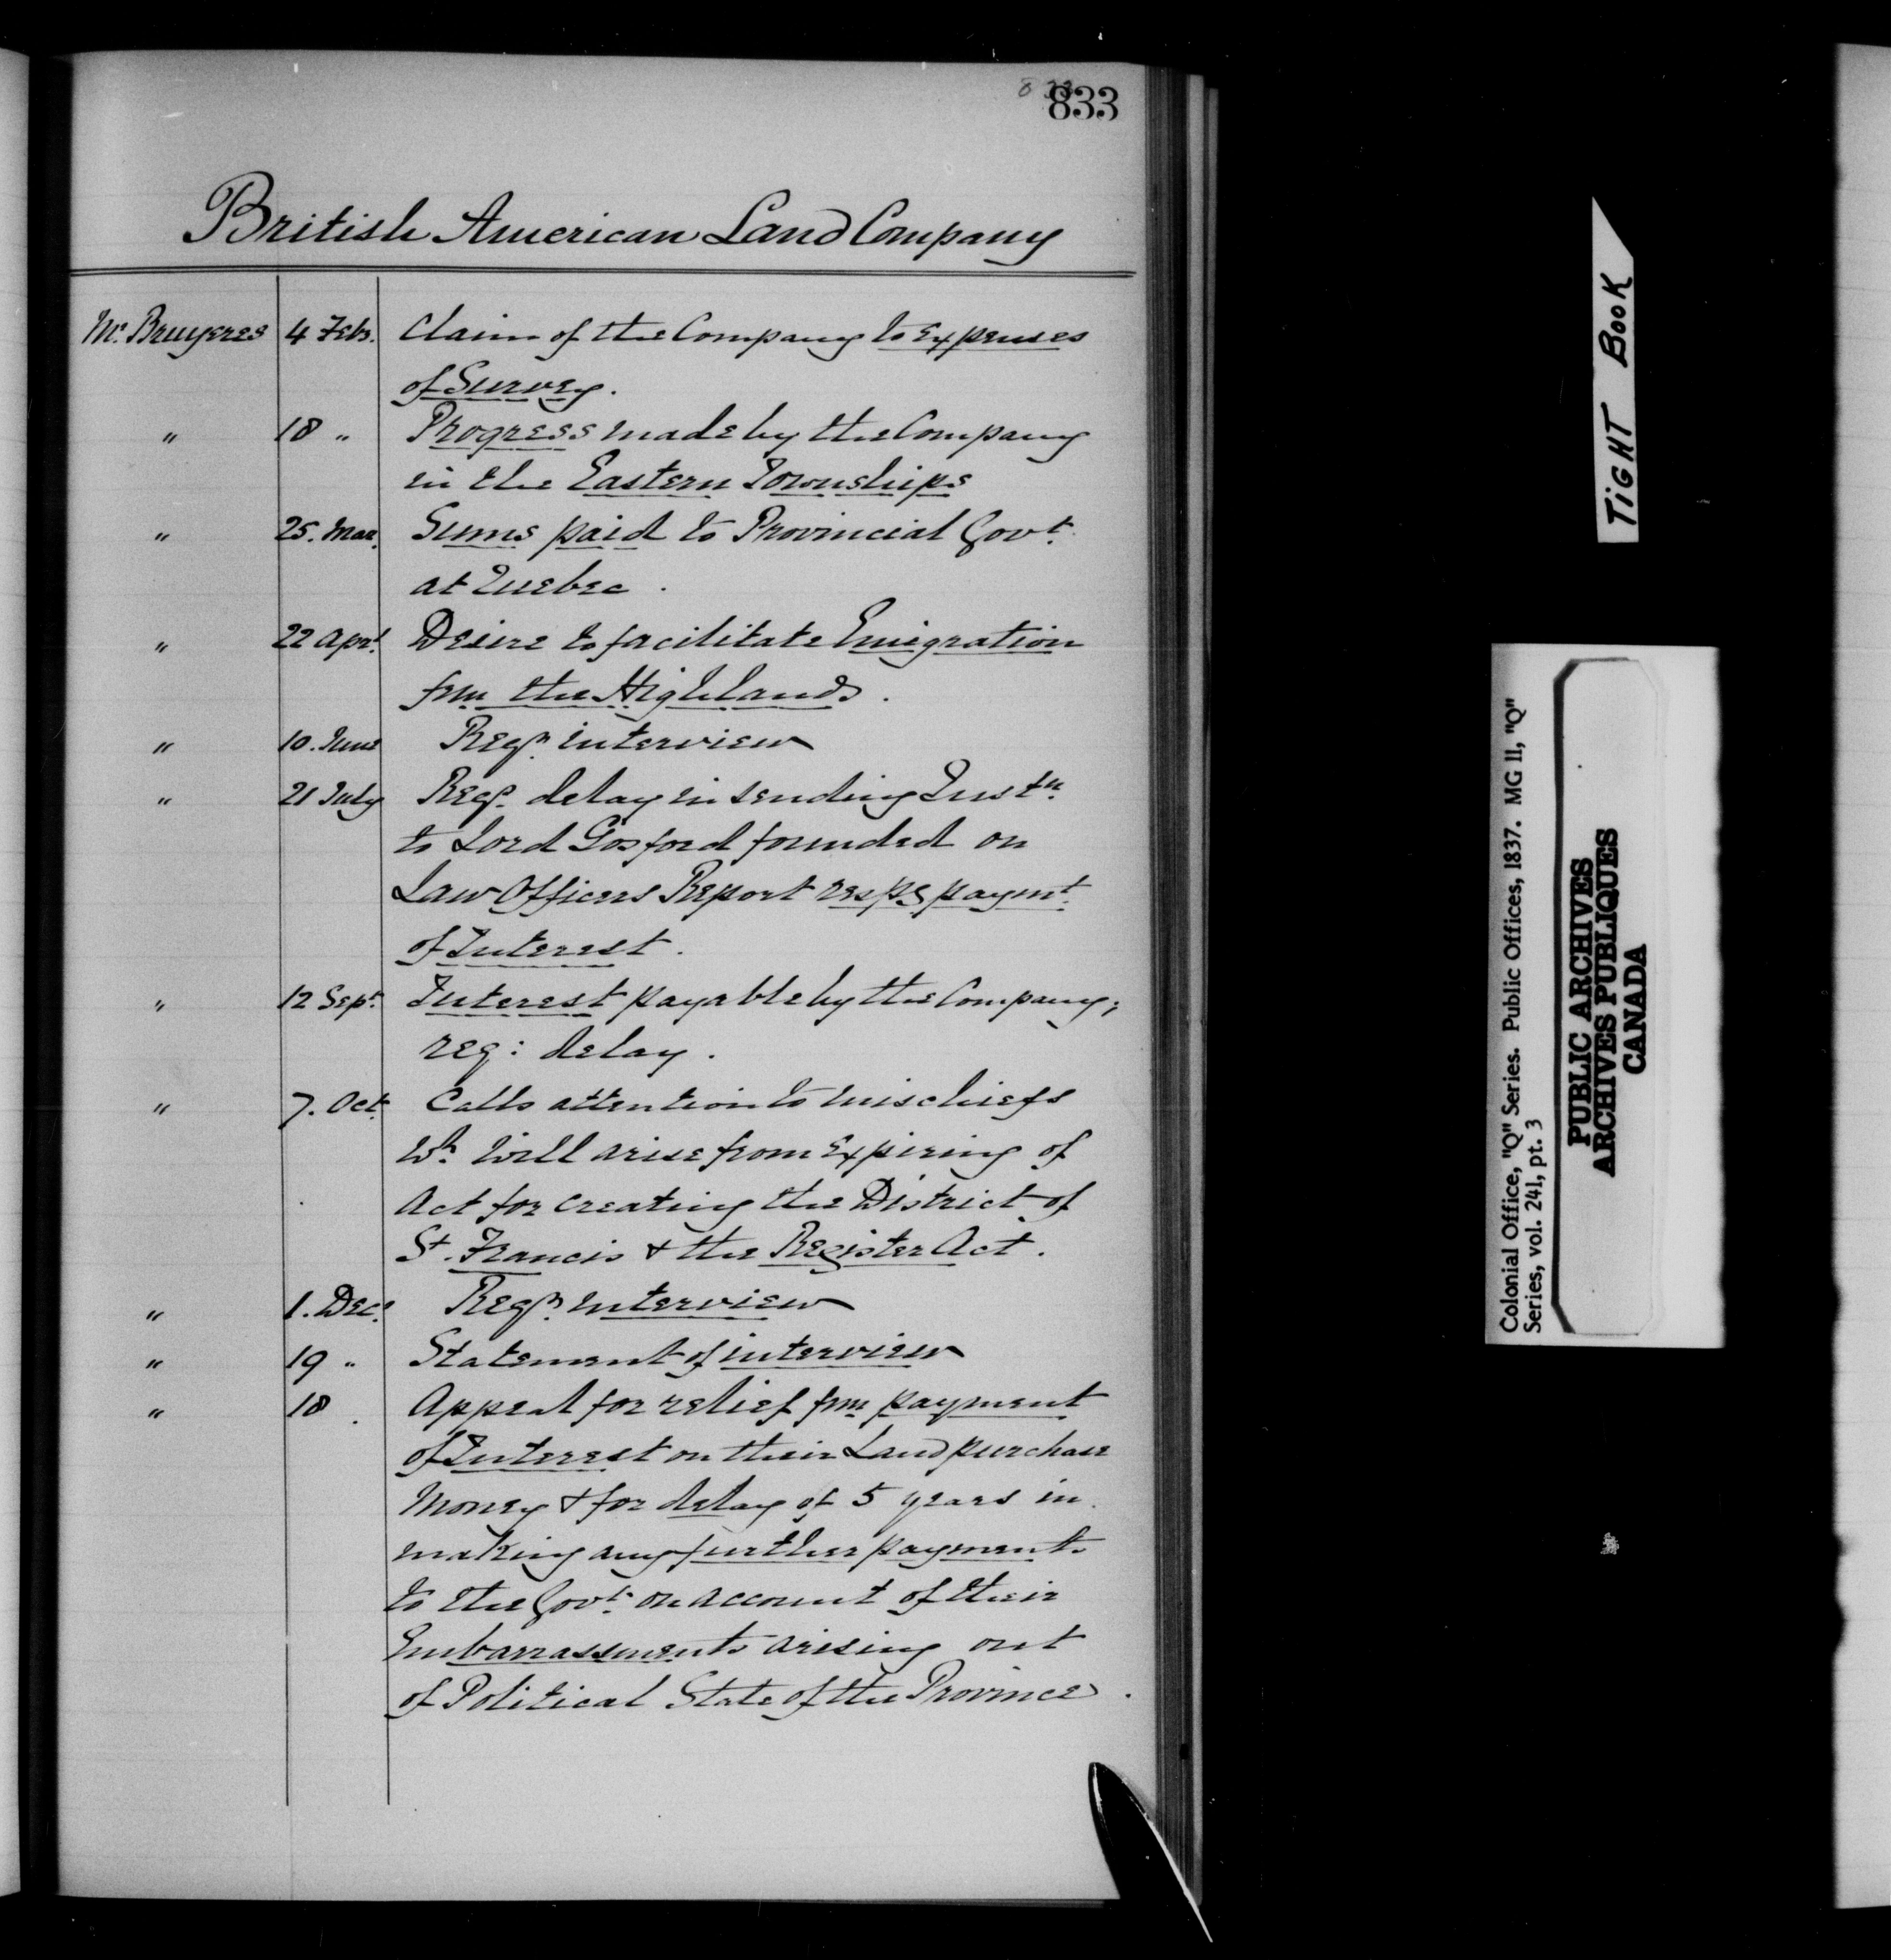 833
833
British American Land Company
Mr. Bruyeres 4 Feb. Claim of the Company to Expenses
of Survey.
" 18 " Progress made by the Company
in the Eastern Townships
" 25. Mar. Sums paid to Provincial Govt.
at Quebec.
" 22 Aprl. Desire to facilitate Emigration
frm the Highlands.
" 10. June Regg. interview
" 21 July Regg. delay in sending Instns.
to Lord Gosford founded on
Law Officers Report respg paymt.
of Interest.
" 12 Sept. Interest payable by the Company;
reg: delay.
" 7. Oct. Calls attention to mischiefs
wh. will arise from Expiring of
Act for creating the District of
St. Francis & the Register Act.
" 1. Dec. Regg. interview
" 19 " Statement of interview
" 18 . Appeal for relief frm payment
of Interest on their Land purchase
Money & for delay of 5 years in
making any further payments
to the Govt. on account of their
Embarrassments arising out
of Political State of the Province.
TIGHT BOOK
Colonial Office, "Q" Series. Public Offices, 1837. MG 11, "Q"
Series, vol. 241, pt. 3
PUBLIC ARCHIVES
ARCHIVES PUBLIQUES
CANADA